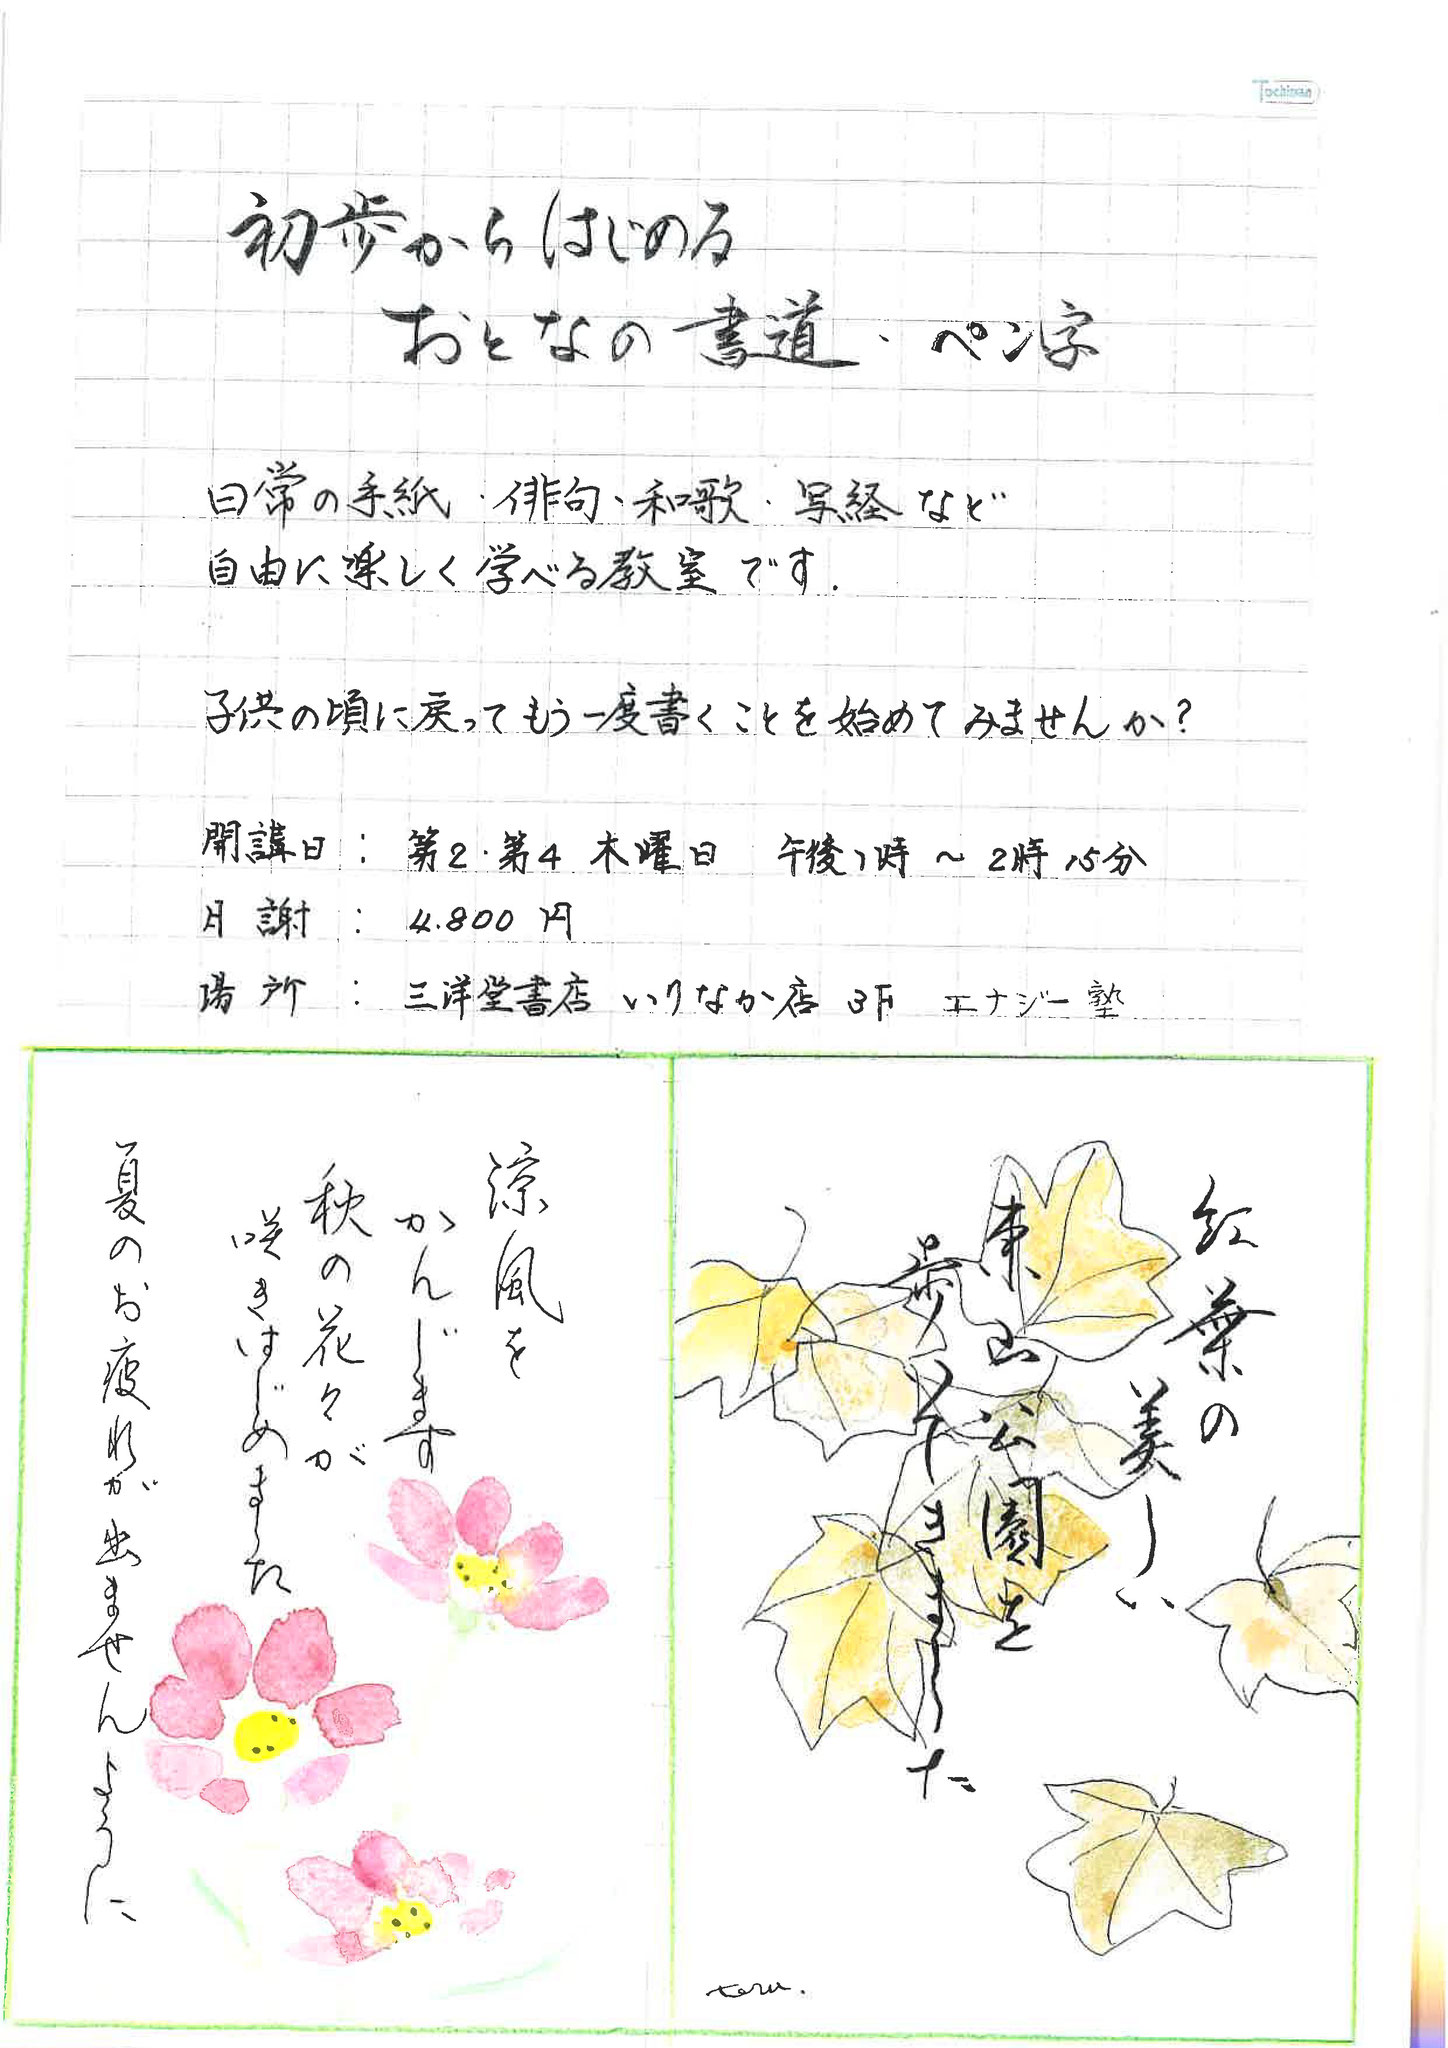 Tochiman
初歩からはじめる
おとなの書道・ペン字
日常の手紙・俳句・和歌・写経など
自由に楽しく学べる教室です.
子供の頃に戻ってもう一度書くことを始めてみませんか?
開講日 : 第2・第4 木曜日 午後1時～2時15分
月謝 : 4.800円
場所 : 三洋堂書店 いりなか店 3F エナジー塾
涼風を
かんじます
秋の花々が
咲きはじめました
夏のお疲れが出ませんように
紅葉の
美しい
東山公園を
歩いてきました
teru.